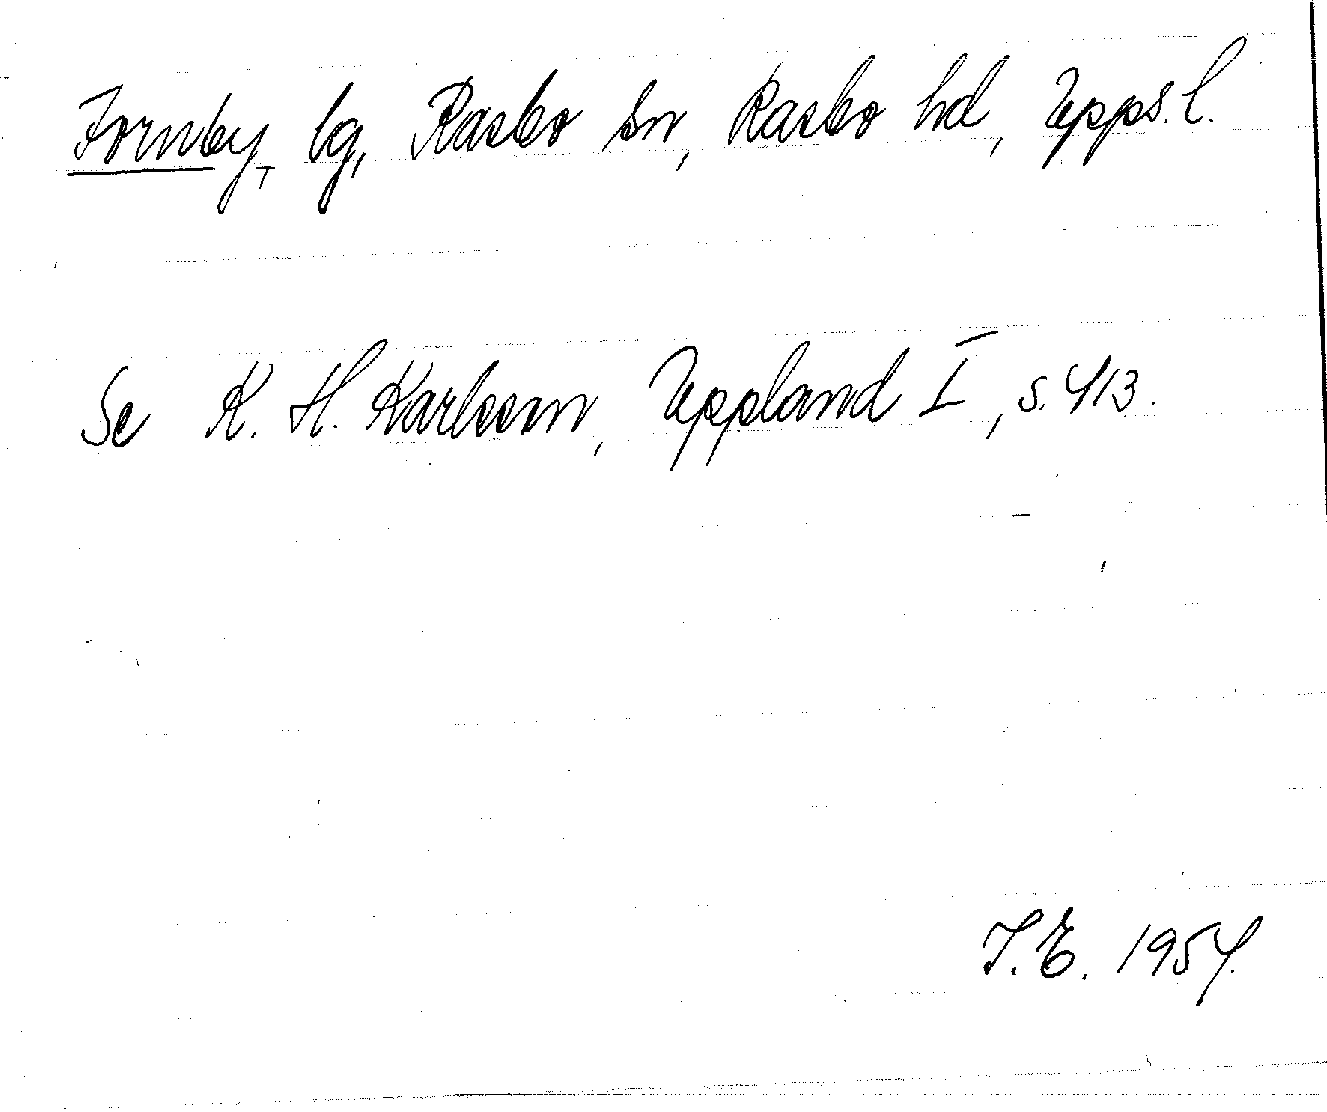 Fornby, by, Rasbo sn, Rasbo hd, Upps. l.
Se K. H. Karlsson, Uppland I, s. 413.
I. E. 1954.